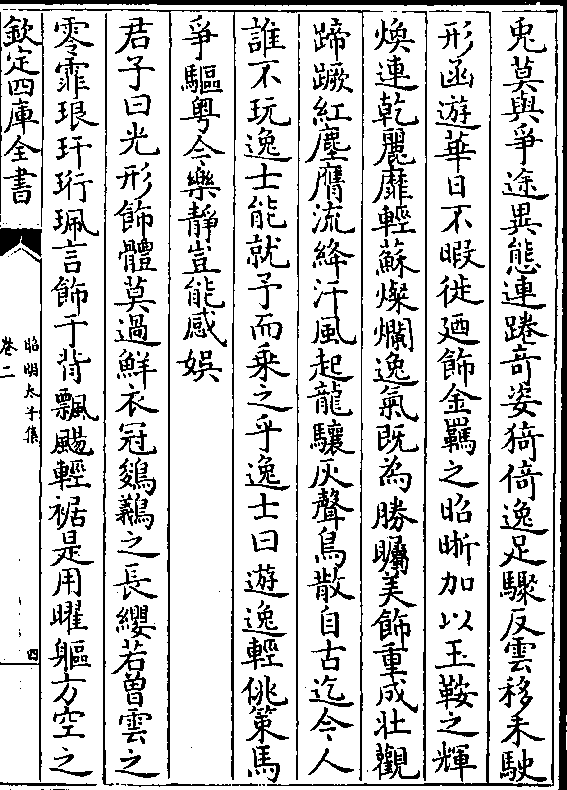 兎莫與爭途異態連踡竒姿猗傛逸足驟反雲移未駛
形函遊華日不暇徙廼飾金羈之昭晣加以玉鞍之輝
煥連乾麗靡輕蘇燦爛逸氣既為勝矚美飾重成壮觀
蹄蹶紅塵膺流絳汗風起龍驤灰聲鳥散自古迄今人
誰不玩逸士能就予而乗之乎逸士曰遊逸輕佻策馬
爭驅粤令樂靜豈能感娯
君子曰光形飾體莫過鮮衣冠鷄鷫之長纓若曽雲之
零霏琅玕珩珮言飾于背飄颺輕裾是用曜軀方空之
欽定四庫全書
昭明太子集
卷二
四